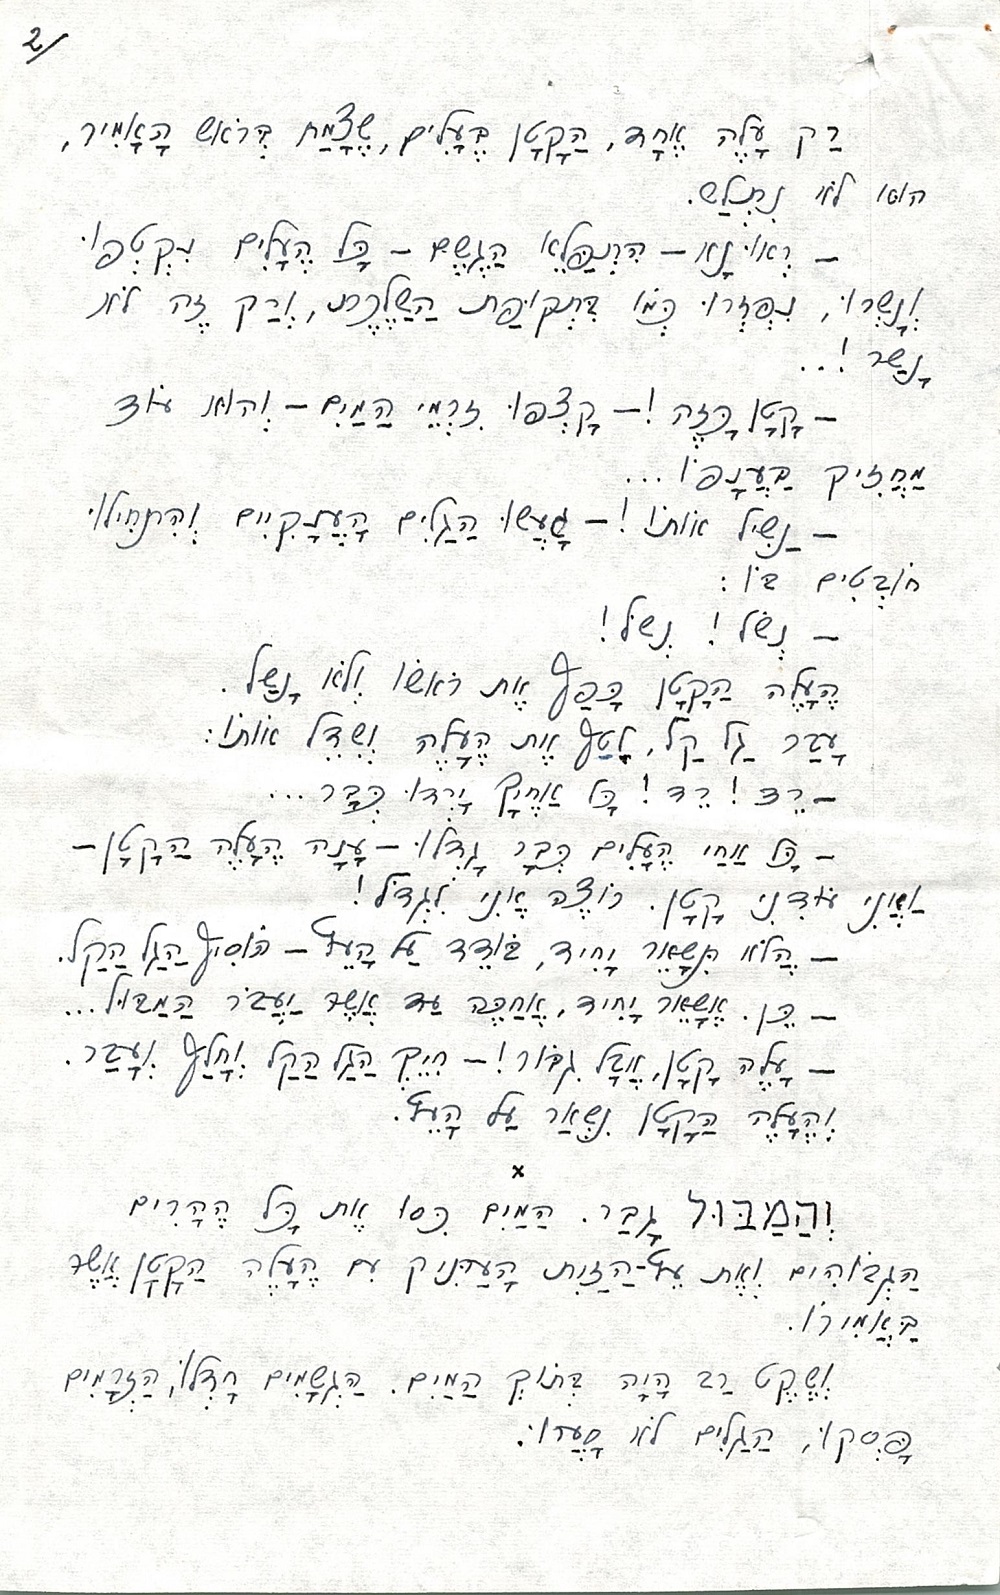 2/
רַק עָלֶה אֶחָד, הַקָטָן בֶּעָלִים, שֶׁצָמַח בְּרֹאשׁ הָאָמִיר,
הוּא לֹא נִתְלַשׁ.
– רְאוּ נָא – הִתְפַּלֵא הַגֶשֶׁם – כָּל הֶעָלִים נִקְטְפוּ
וְנָשְׁרוּ, נִפְזְרוּ כְּמוֹ בִּתְקוּפַת הַשַׁלֶכֶת, וְרַק זֶה לֹא
נָשַׁר!...
– קָטָן כָּזֶה! – קָצְפוּ זִרְמֵי הַמַיִם – וְהוּא עוֹד
מַחֲזִיק בַּעֲנָפוֹ...
– נַשִׁיל אוֹתוֹ! – גָעֲשׁוּ הַגַלִים הָעֲנָקִיִים וְהִתְחִילוּ
חוֹבְטִים בּוֹ:
– נְשֹׁל! נְשֹׁל!
הֶעָלֶה הַקָטָן כָּפַף אֶת רֹאשׁוֹ וְלֹא נָשַׁל.
עָבַר גַל קַל, לָטַף אֶת הֶעָלֶה וְשִׁדֵל אוֹתוֹ:
– רֵד! רֵד! כָּל אַחֶיךָ יָרְדוּ כְּבָר...
– כָּל אַחַי הֶעָלִים כְּבָר גָדְלוּ – עָנָה הֶעָלֶה הַקָטָן –
וַאֲנִי עוֹדֶנִי קָטָן. רוֹצֶה אֲנִי לִגְדֹל!
– הֲלֹא תִּשָׁאֵר יָחִיד, בּוֹדֵד עַל הָעֵץ – הוֹסִיף הַגַל הַקַל.
– כֵּן. אֶשָׁאֵר יָחִיד, אֲחַכֶּה עַד אֲשֶׁר יַעֲבֹר הַמַבּוּל...
– עָלֶה קָטָן, אֲבָל גִבּוֹר! – חִיֵךְ הַגַל הַקַל וְחָלַף וְעָבַר.
וְהֶעָלֶה הַקָטָן נִשְׁאַר עַל הָעֵץ.
x
וְהַמַבּוּל גָבַר. הַמַיִם כִּסוּ אֶת כָּל הֶהָרִים
הַגְבוֹהִים וְאֶת עֵץ-הַזַיִת הָעַנִיק עִם הֶעָלֶה הַקָטָן אֲשֶׁר
בַּאֲמִירוֹ.
וְשֶׁקֶט רַב הָיָה בְּתוֹךְ הַמַיִם. הַגְשָׁמִים חָדְלוּ, הַזְרָמִים
פָּסְקוּ, הַגַלִים לֹא סָעֲרוּ.